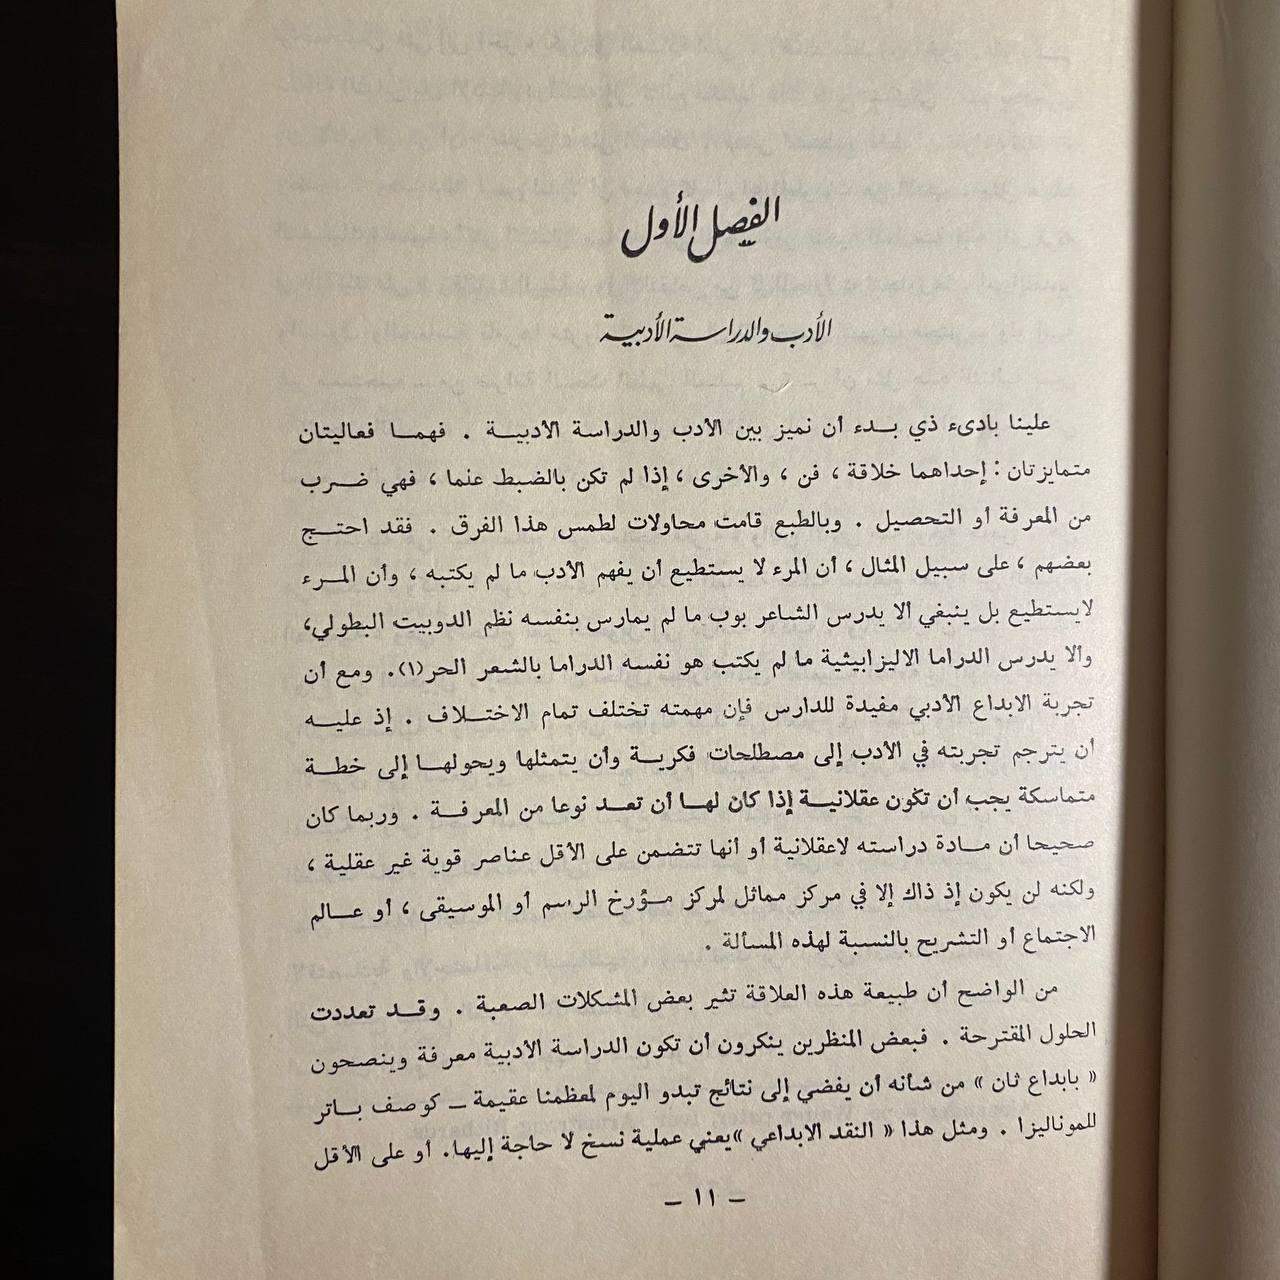 الفصل الأول
الأدب والدراسة الأدبية
علينا بادىء ذي بدء أن نميز بين الأدب والدراسة الأدبية . فهما فعاليتان
متمايزتان : إحداهما خلاقة ، فن ، والأخرى ، إذا لم تكن بالضبط عنما ، فهي ضرب
من المعرفة أو التحصيل . وبالطبع قامت محاولات لطمس هذا الفرق . فقد احتج
بعضهم ، على سبيل المثال ، أن المرء لا يستطيع أن يفهم الأدب ما لم يكتبه ، وأن المرء
لايستطيع بل ينبغي ألا يدرس الشاعر بوب ما لم يمارس بنفسه نظم الدوبيت البطولي،
وألا يدرس الدراما الاليزابيثية ما لم يكتب هو نفسه الدراما بالشعر الحر(١). ومع أن
تجربة الابداع الأدبي مفيدة للدارس فإن مهمته تختلف تمام الاختلاف . إذ عليه
أن يترجم تجربته في الأدب إلى مصطلحات فكرية وأن يتمثلها ويحولها إلى خطة
متماسكة يجب أن تكون عقلانية إذا كان لها أن تعد نوعا من المعرفة . وربما كان
صحيحا أن مادة دراسته لاعقلانية أو أنها تتضمن على الأقل عناصر قوية غير عقلية ،
ولكنه لن يكون إذ ذاك إلا في مركز مماثل لمركز مؤرخ الرسم أو الموسيقى ، أو عالم
الاجتماع أو التشريح بالنسبة لهذه المسألة .
من الواضح أن طبيعة هذه العلاقة تثير بعض المشكلات الصعبة . وقد تعددت
الحلول المقترحة . فبعض المنظرين ينكرون أن تكون الدراسة الأدبية معرفة وينصحون
« بابداع ثان » من شأنه أن يفضي إلى نتائج تبدو اليوم لمعظمنا عقيمة – كوصف باتر
للموناليزا . ومثل هذا « النقد الابداعي »يعني عملية نسخ لا حاجة إليها. أو على الأقل
– ١١ –